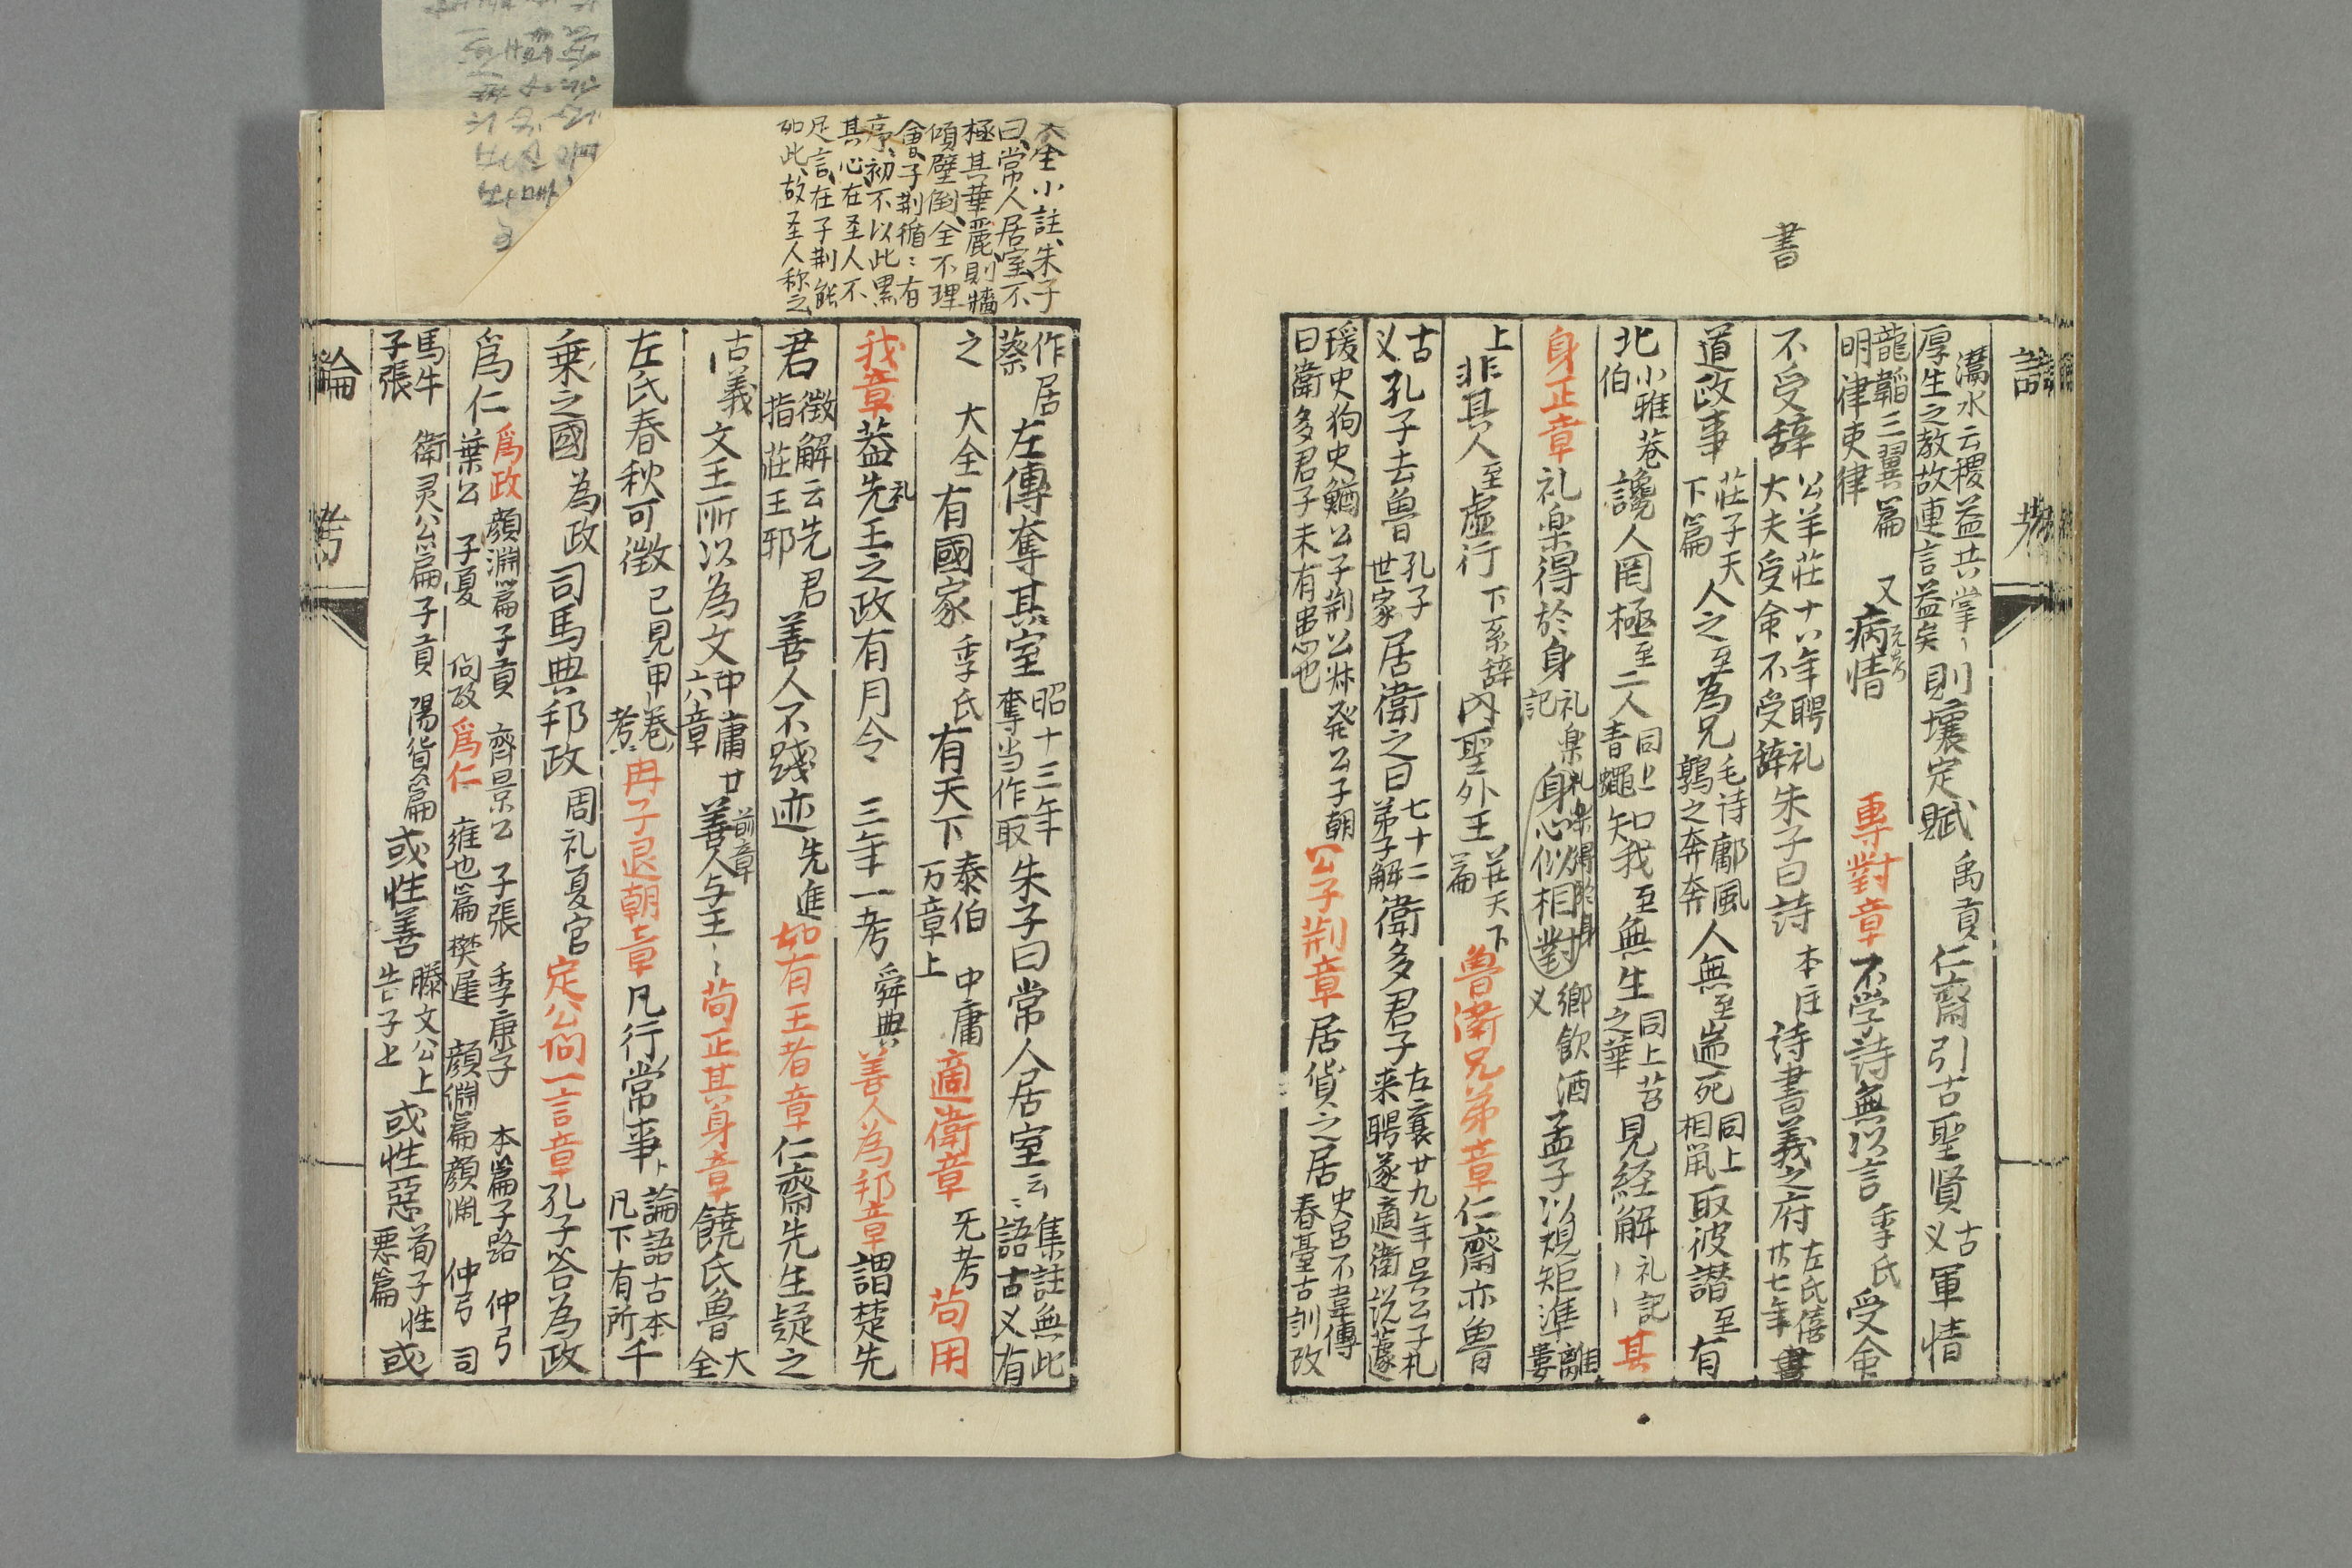 書
灊水云稷益共掌〻
厚生之教故連言益矣
則壤定賦
禹貢
仁齋引古聖賢
古
义
軍情
龍韜三翼篇
明律吏律
又
病情
專對章
不学詩無以言
季氏
受命
不受辞
公羊莊十八年聘礼
大夫受命不受辞
朱子曰詩
本注
詩書義之府
左氏僖
廿七年
書
道政事
莊子天
下篇
人之至為兄
毛诗鄘風
鶉之奔奔
人無至遄死
同上
相鼠
取彼譖至有
北
小雅巷
伯
讒人罔極至二人
同上
青蠅
知我至無生
同上苕
之華
見経解
礼記
其
身正章
礼楽得於身
礼楽
記
礼楽得於身
身心似相對
鄉飲酒
义
孟子以規矩準
離
婁
上
非其人至虛行
下系辞
内聖外王
莊天下
篇
魯衛兄弟章
仁齋亦魯
古
义
孔子去魯
孔子
世家
居衛之曰
七十二
弟子解
衛多君子
左襄廿九年吳公子札
来聘遂適衛説蘧
瑗史狗史鰌公子荆公叔発公子朝
曰衛多君子未有患也
公子荆章
居貨之居
史呂不韋傳
春臺古訓改
大全小註、朱子
曰、常人居室、不
極其華麗、則牆
傾壁倒、全不理
會、子荆循〻有
序、初不以此累
其心、在至人不
足言、在子荆能
如此、故至人称之
作居
蔡
左傳奪其室
昭十三年
奪当作取
朱子曰常人居室云〻
集註無此
語古义有
之
大全
有國家
季氏
有天下
泰伯
万章上
中庸
適衛章
旡考
苟用
我章
蓋先王之政有月令
礼
三年一考
舜典
善人為邦章
謂楚先
君
徴解云先君
指莊王邪
善人不踐迹
先進
如有王者章
仁齋先生疑之
古義
文王所以為文
中庸廿
六章
善人与王〻
前章
苟正其身章
饒氏魯
大
全
左氏春秋可徴
已見甲巻
考
冉子退朝章
凡行常事
論語古本
凡下有所
千
乗之國
為政
司馬典邦政
周礼夏官
定公问一言章
孔子答為政
爲仁
爲政
顔淵篇子貢
齊景公
子張
季康子
本篇子路
仲弓
葉公
子夏
问政
爲仁
雍也篇
樊遲
顔淵篇顔淵
仲弓
司
馬牛
子張
衛灵公篇子貢
陽貨篇
或性善
滕文公上
告子上
或性惡
荀子性
悪篇
或
論
考